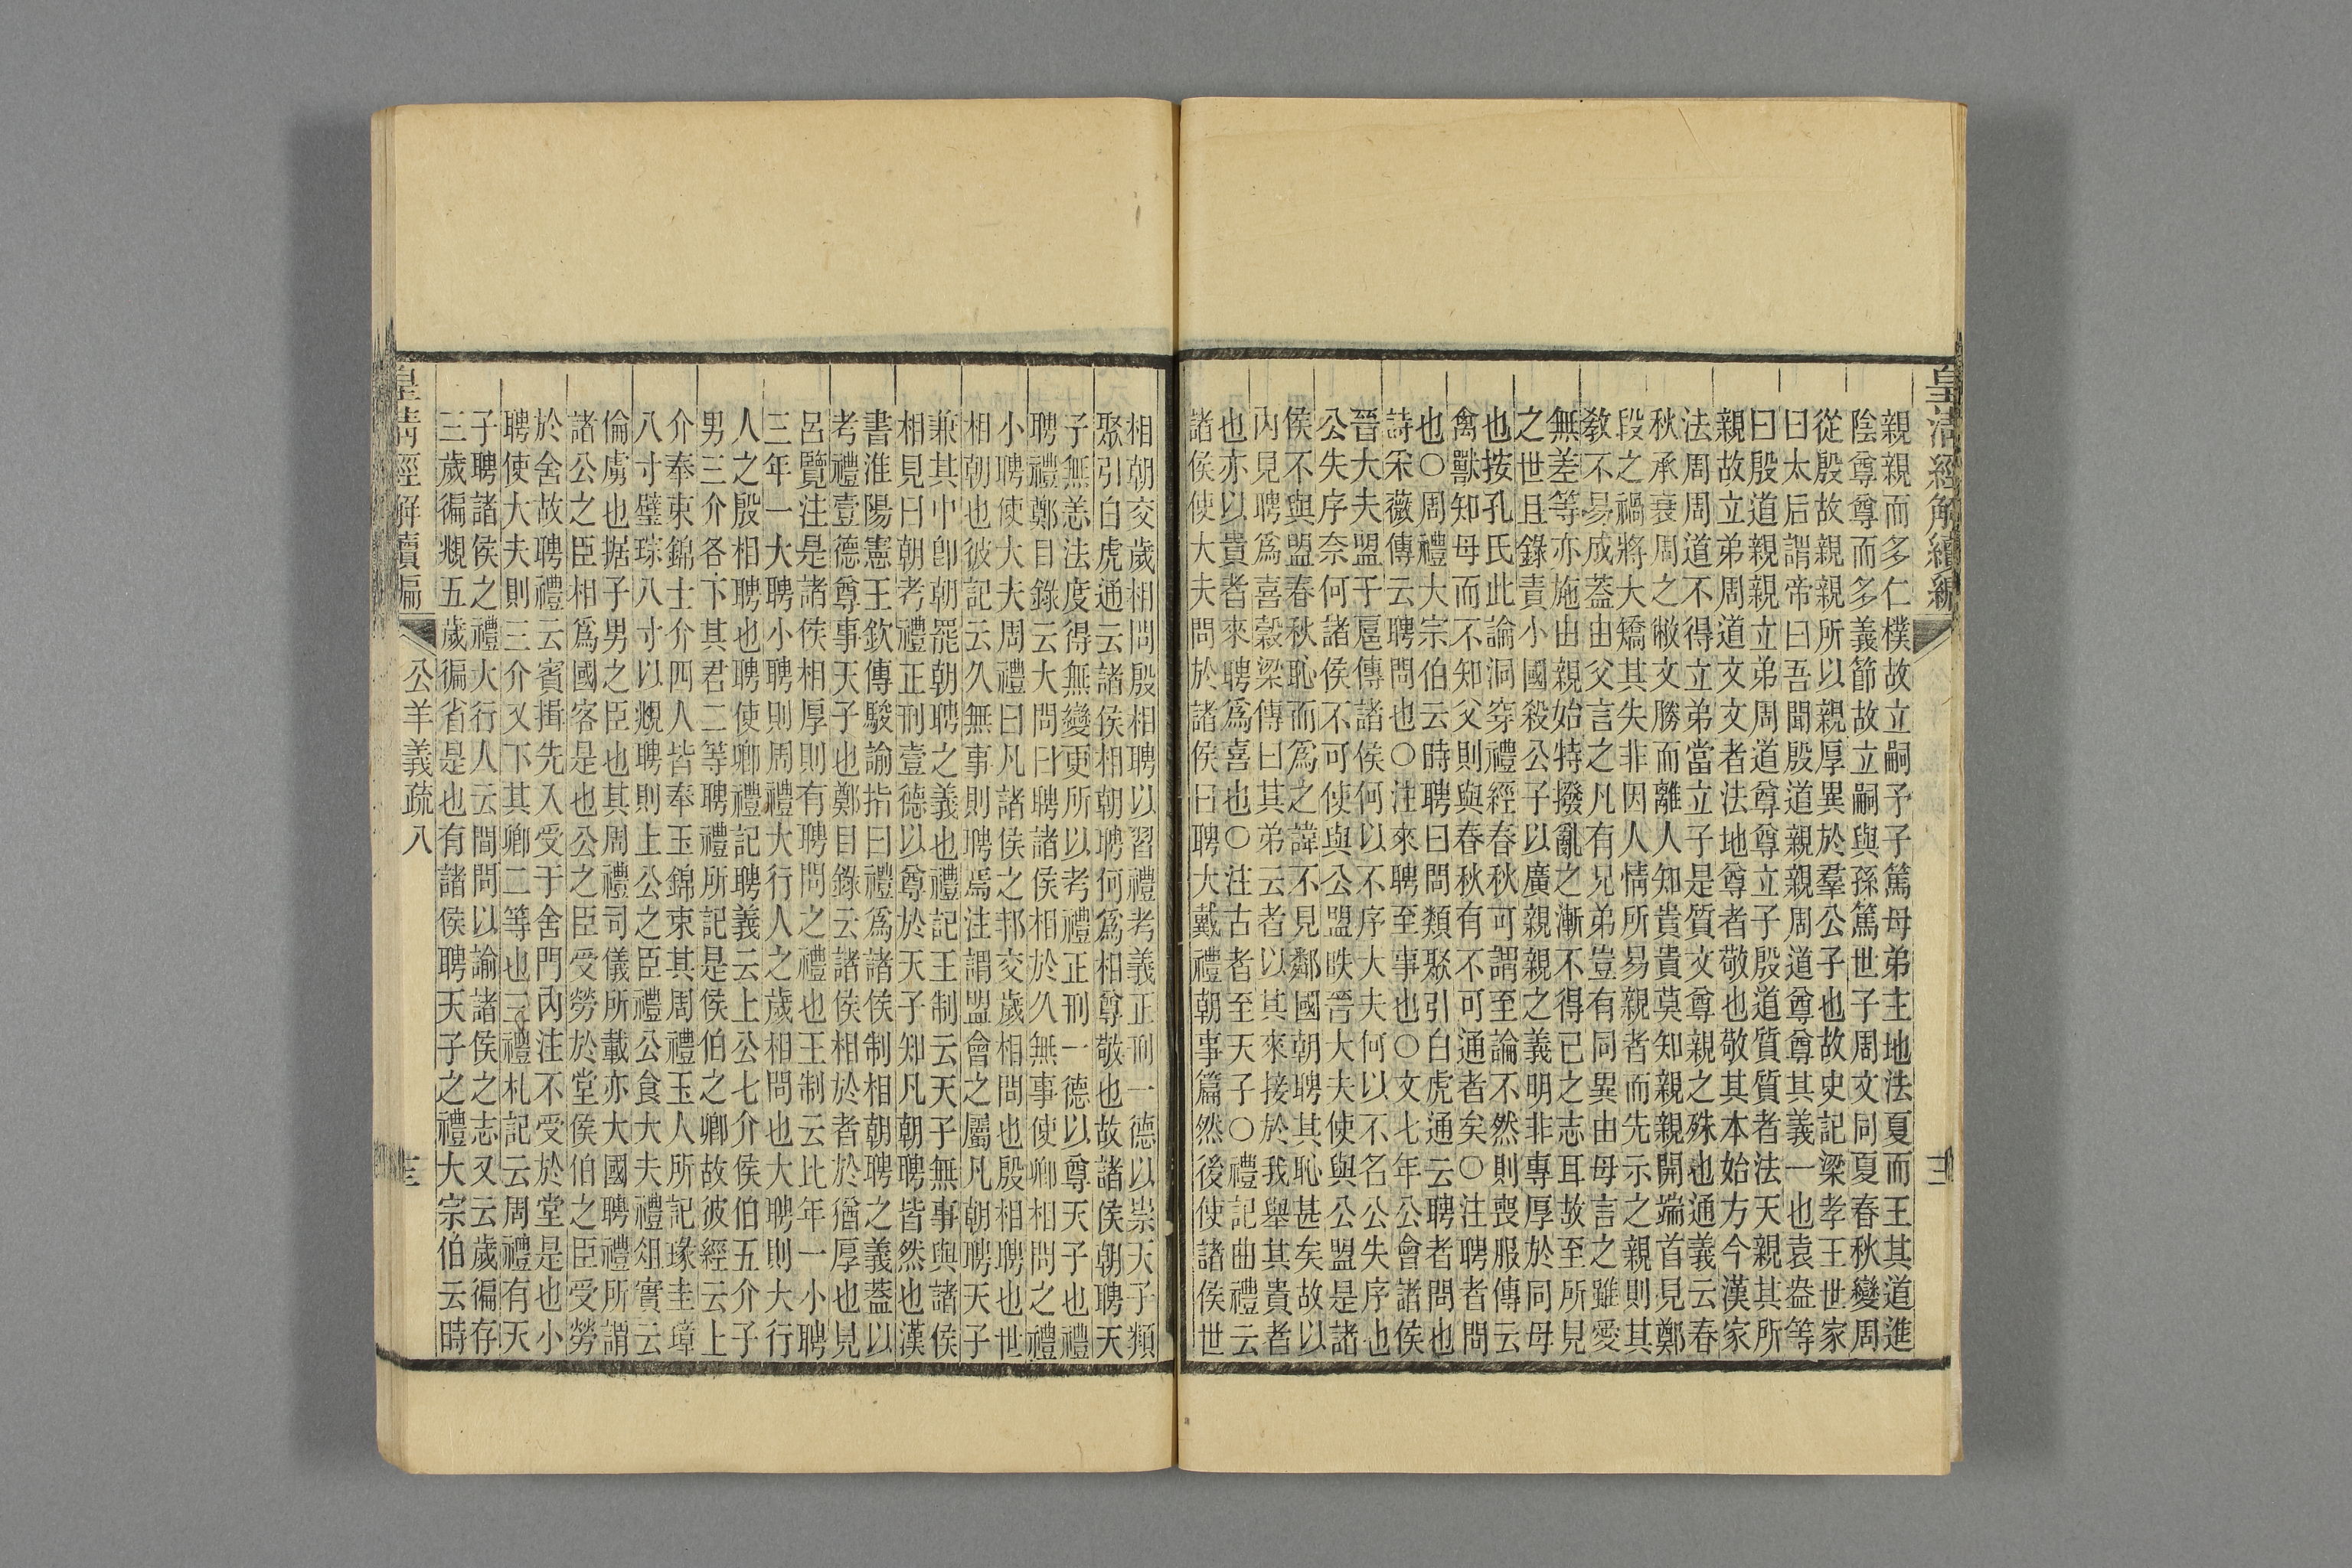 皇清經解續編
三
親親而多仁樸故立嗣予子篤母弟主地法夏而王其道進
陰尊尊而多義節故立嗣與孫篤世子周文同夏春秋變周
從殷故親親所以親厚異於羣公子也故史記梁孝王世家
曰太后謂帝曰吾聞殷道親親周道尊尊其義一也袁盎等
曰殷道親親立弟周道尊尊立子殷道質質者法天親其所
親故立弟周道文文者法地尊者敬也敬其本始方今漢家
法周周道不得立弟當立子是質文尊親之殊也通義云春
秋承衰周之敝文勝而離人人知貴貴莫知親親開端首見鄭
段之禍將大矯其失非因人情所易親者而先示之親則其
敎不易成蓋由父言之凡有兄弟豈有同異由母言之雖愛
無差等亦施由親始特撥亂之漸不得已之志耳故至所見
之世且錄責小國殺公子以廣親親之義明非專厚於同母
也按孔氏此論洞穿禮經春秋可謂至論不然則喪服傳云
禽獸知母而不知父則與春秋有不可通者矣○注聘者問
也○周禮大宗伯云時聘曰問類聚引白虎通云聘者問也
詩采薇傳云聘問也○注來聘至事也○文七年公會諸侯
晉大夫盟于扈傳諸侯何以不序大夫何以不名公失序也
公失序奈何諸侯不可使與公盟眣晉大夫使與公盟是諸
侯不與盟春秋恥而爲之諱不見鄰國朝聘其恥甚矣故以
內見聘爲喜穀梁傳曰其弟云者以其來接於我舉其貴者
也亦以貴者來聘爲喜也○注古者至天子○禮記曲禮云
諸侯使大夫問於諸侯曰聘大戴禮朝事篇然後使諸侯世
相朝交歲相問殷相聘以習禮考義正刑一德以崇天子類
聚引白虎通云諸侯相朝聘何爲相尊敬也故諸侯朝聘天
子無恙法度得無變更所以考禮正刑一德以尊天子也禮
聘禮鄭目錄云大問曰聘諸侯相於久無事使卿相問之禮
小聘使大夫周禮曰凡諸侯之邦交歲相問也殷相聘也世
相朝也彼記云久無事則聘焉注謂盟會之屬凡朝聘天子
兼其中卽朝罷朝聘之義也禮記王制云天子無事與諸侯
相見曰朝考禮正刑壹德以尊於天子知凡朝聘皆然也漢
書淮陽憲王欽傳駿諭指曰禮爲諸侯制相朝聘之義蓋以
考禮壹德尊事天子也鄭目錄云諸侯相於者於猶厚也見
呂覽注是諸侯相厚則有聘問之禮也王制云比年一小聘
三年一大聘小聘則周禮大行人之歲相問也大聘則大行
人之殷相聘也聘使卿禮記聘義云上公七介侯伯五介子
男三介各下其君二等聘禮所記是侯伯之卿故彼經云上
介奉束錦士介四人皆奉玉錦束其周禮玉人所記瑑圭璋
八寸璧琮八寸以覜聘則上公之臣禮公食大夫禮俎實云
倫膚也据子男之臣也其周禮司儀所載亦大國聘禮所謂
諸公之臣相爲國客是也公之臣受勞於堂侯伯之臣受勞
於舍故聘禮云賓揖先入受于舍門內注不受於堂是也小
聘使大夫則三介又下其卿二等也三禮札記云周禮有天
子聘諸侯之禮大行人云間問以諭諸侯之志又云歲徧存
三歲徧覜五歲徧省是也有諸侯聘天子之禮大宗伯云時
皇清經解續編
公羊義疏八